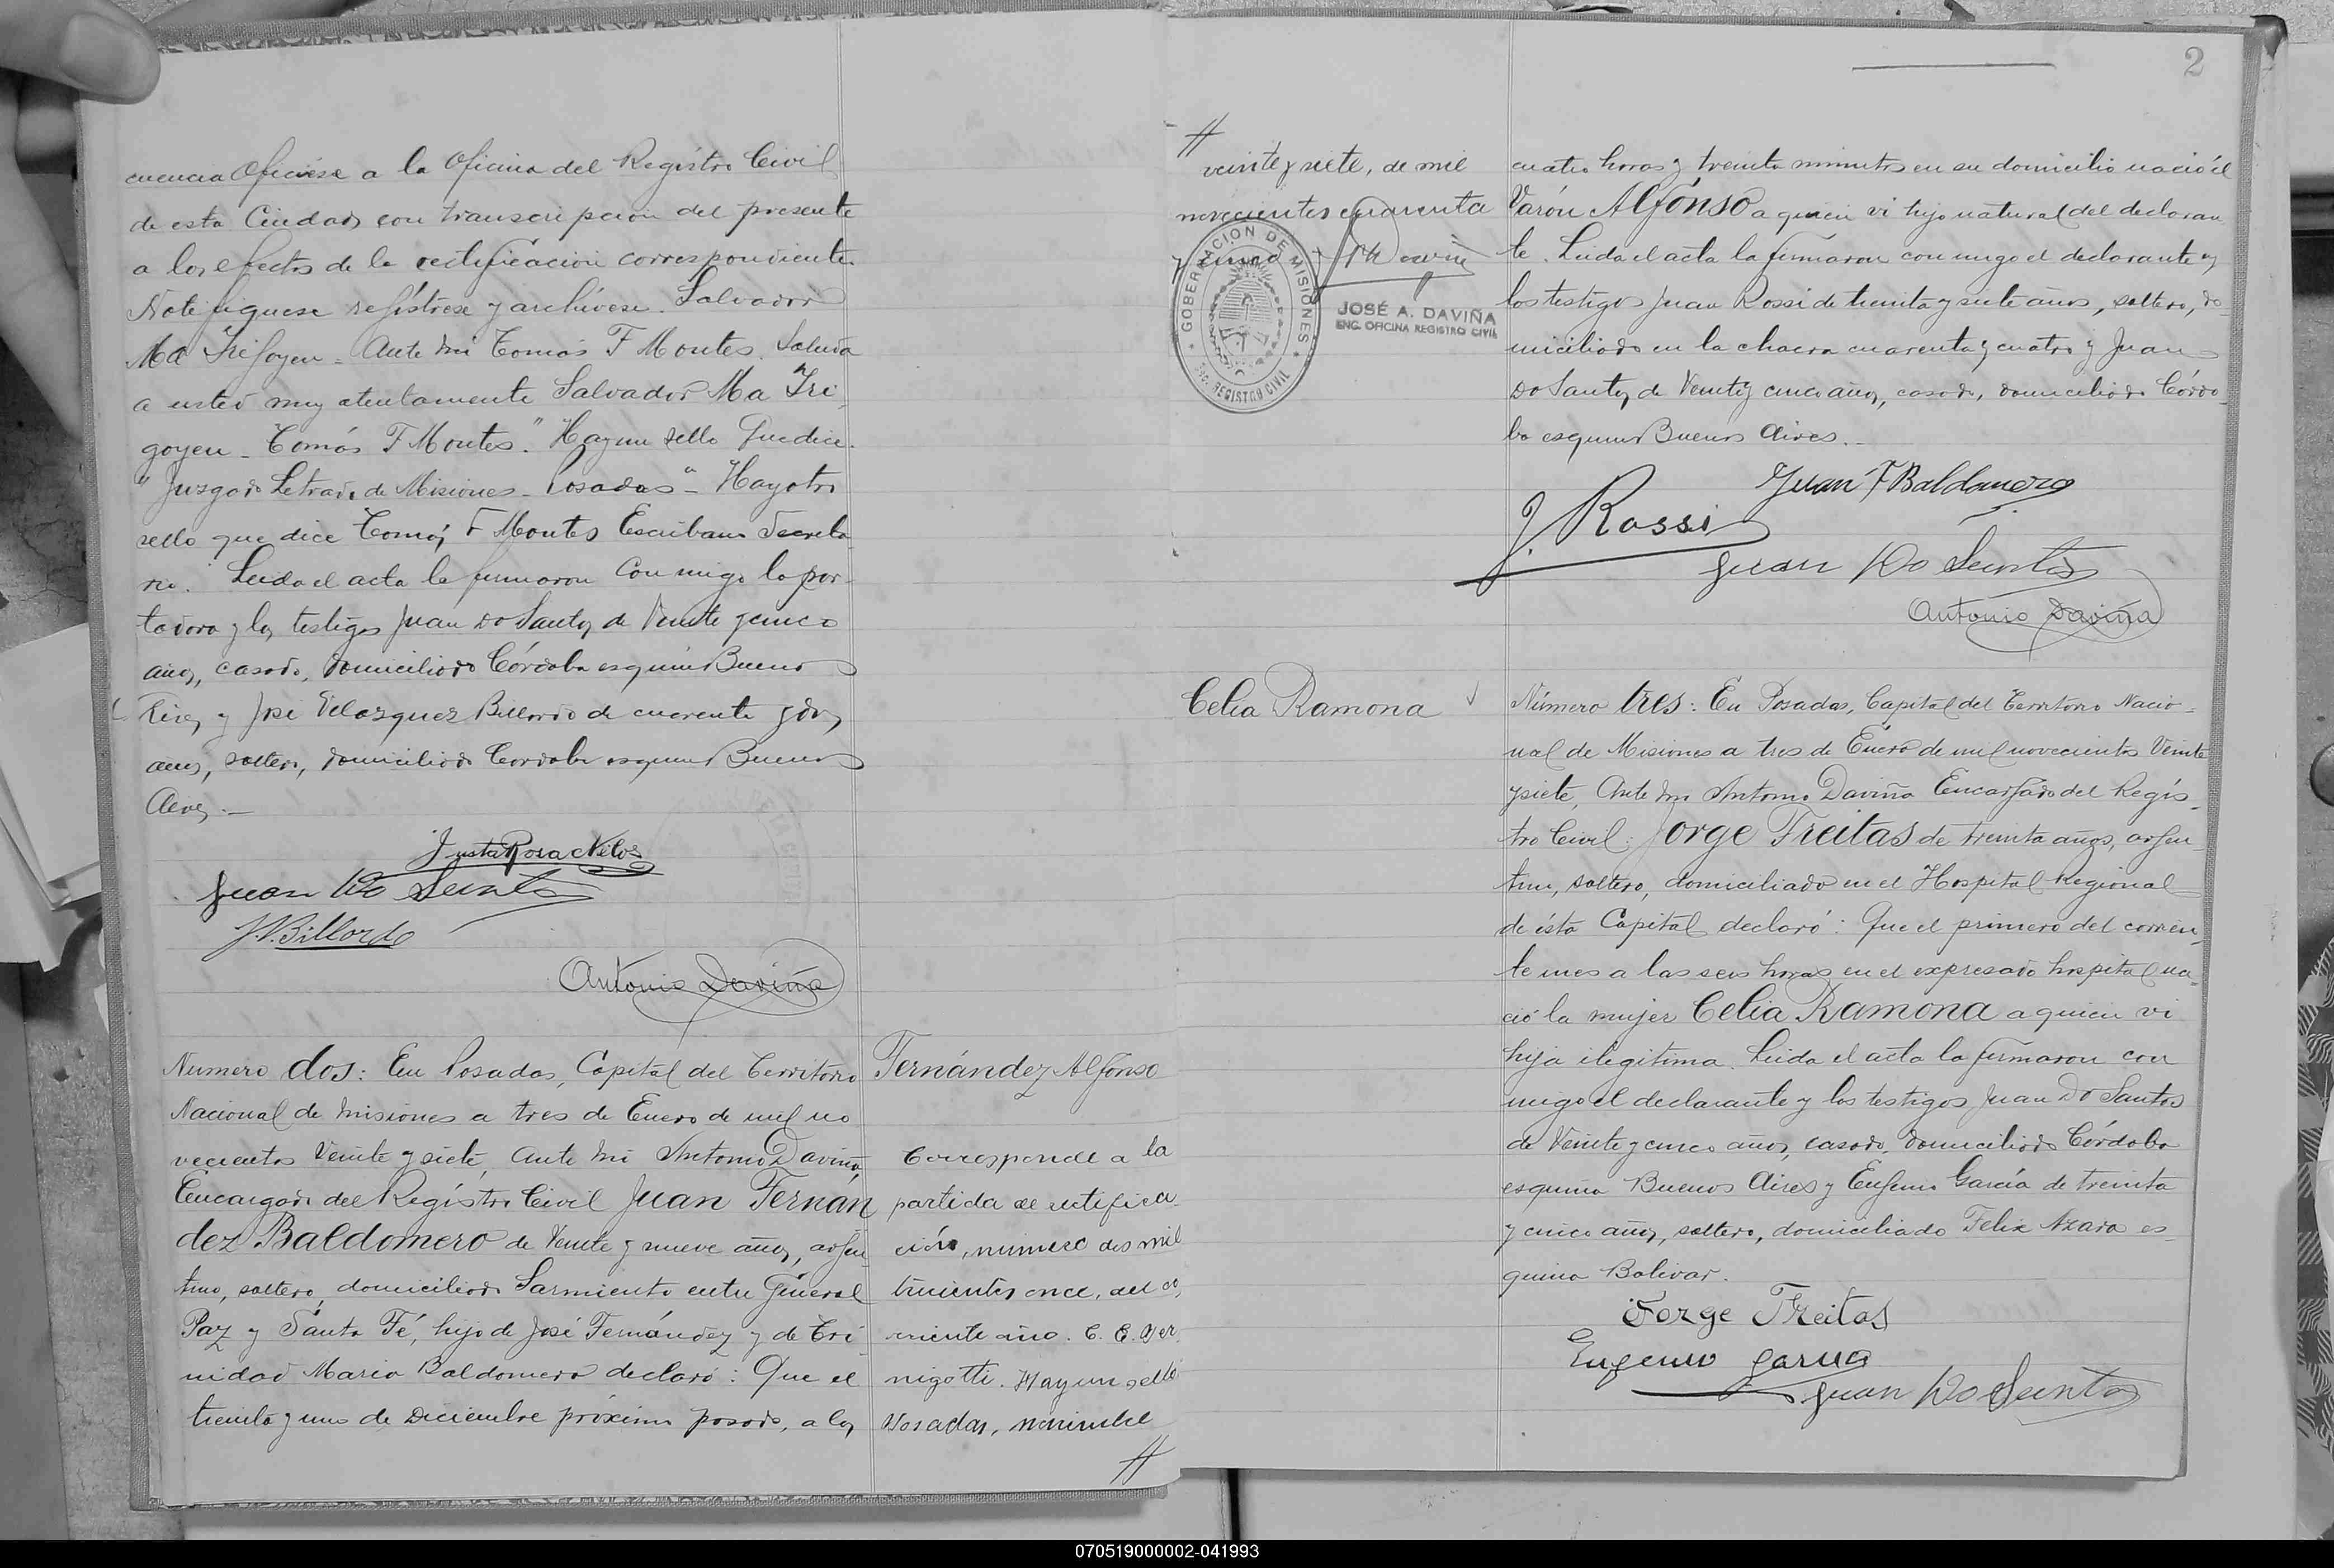 cuencia Ofíciese a la Oficina del Registro Civil
de esta Ciudad, con transcripcion del presente
a los efectos de la rectificación correspondiente.
Notifíquese regístrese y archívese. Salvador
Ma Irigoyen - Ante mi Tomás F Montes. Saluda
a usted muy atentamente Salvador Ma Iri-
goyen - Tomás F Montes." Hay un sello que dice.
"Juzgado Letrado de Misiones - Posadas" - Hay otro
sello que dice Tomás F Montes Escribano Secreta
rio. Leida el acta la firmaron con migo la por-
tadora y los testigos Juan Do Santos de Veinte y cinco
años, casado, domiciliado Córdoba esquina Buenos
Aires y José Velazquez Billordo de cuarenta y dos
años, soltero, domiciliado Cordoba esquina Buenos
Aires.-
Justa Rosa
Juan Do Santos
J.V. Billordo
Antonio Daviña
Numero dos: En Posadas, Capital del Territorio
Nacional de Misiones a tres de Enero de mil no
vecientos Veinte y siete, Ante mi Antonio Daviña
Encargado del Registro Civil Juan Fernán
dez Baldomero de Veinte y nueve años, argen-
tino, soltero, domiciliado Sarmiento entre General
Paz y Santa Fé, hijo de José Fernández y de Tri-
nidad Maria Baldomero declaró: Que el
treinta y uno de Diciembre próximo pasado, a las
Fernández Alfonso
Corresponde a la
partida de rectifica-
ción, número dos mil
trescientos once, del co
rriente año. C. E.
nigotti. Hay un sello
Posadas, noviembre
//
2
//
veinte y siete, de mil
novecientos cuarenta
y
GOBERNACION DE MISIONES
REGISTRO CIVIL
JOSÉ A. DAVIÑA
ENC. OFICINA REGISTRO CIVIL
cuatro horas y treinta minutos en su domicilio nació el
Varón Alfónso a quien vi hijo natural del declaran
te. Leida el acta la firmaron con migo el declarante y
los testigos Juan Rossi de treinta y siete años, soltero, do-
miciliado en la chacra cuarenta y cuatro y Juan
Do Santos de Veinte y cinco años, casado, domiciliado Córdo-
ba esquina Buenos Aires.-
Juan F Baldomero
J. Rossi
Juan Do Santos
Antonio Daviña
Celia Ramona
Número tres: En Posadas, Capital del Territorio Nacio-
nal de Misiones a tres de Enero de mil novecientos Veinte
y siete, Ante mi Antonio Daviña Encargado del Regis-
tro Civil: Jorge Freitas de treinta años, argen-
tino, soltero, domiciliado en el Hospital Regional
de ésta Capital declaró: Que el primero del corrien-
te mes a las seis horas en el expresado hospital na-
ció la mujer Celia Ramona a quien vi
hija ilegitima. Leida el acta la firmaron con
migo el declarante y los testigos Juan Do Santos
de Veinte y cinco años, casado, domiciliado Córdoba
esquina Buenos Aires y Eugenio García de treinta
y cinco años, soltero, domiciliado Felix Azara es-
quina Bolivar.
Jorge Freitas
Eugenio Garcia
Juan Do Santos
070519000002-041993